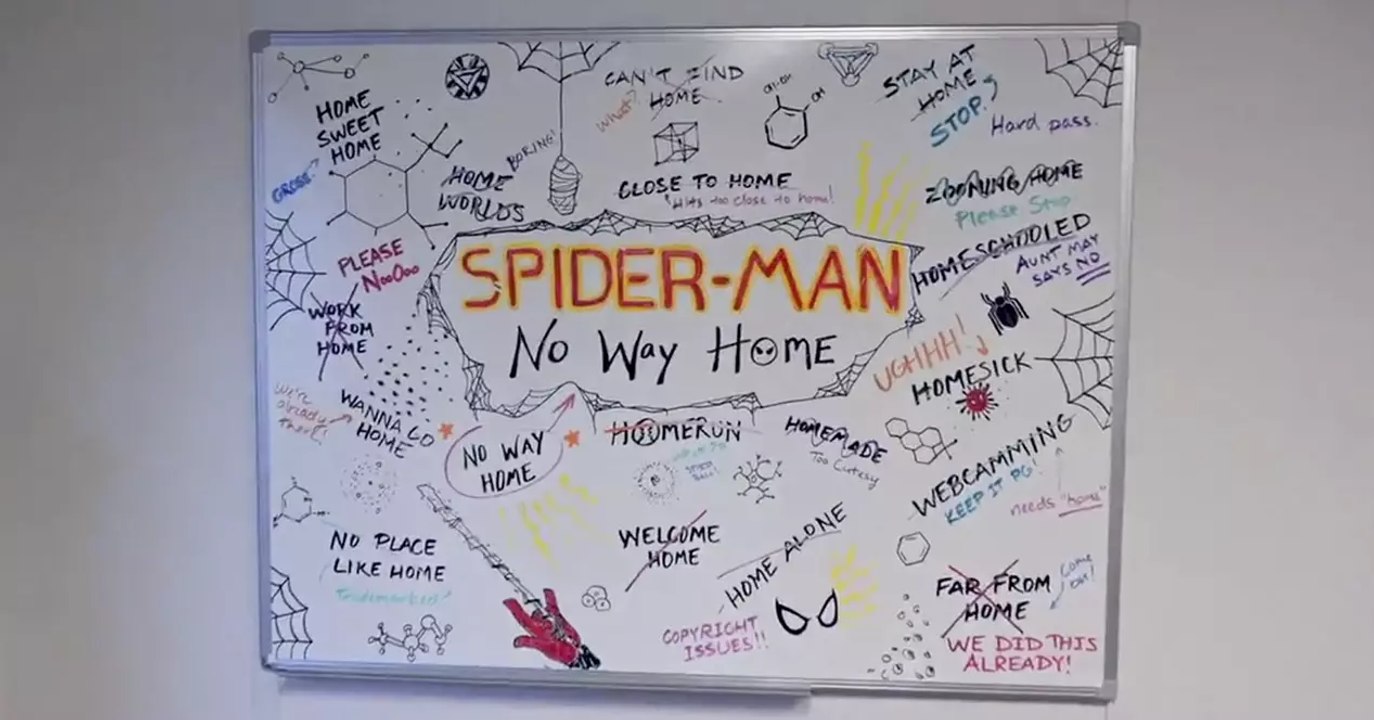 HOME
SWEET
HOME
GROSS
CAN'T FIND
HOME
What?
STAY AT
HOME
STOP.
Hard pass.
HOME
WORLDS
BORING!
CLOSE TO HOME
Hits too close to home!
ZOOMING HOME
Please Stop
HOMESCHOOLED
AUNT MAY
SAYS NO
PLEASE
NooOoo
WORK
FROM
HOME
SPIDER-MAN
No Way HOME
UGHHH!
HOMESICK
We're
already
there!
WANNA GO
HOME
NO WAY
HOME
HOOMERUN
HOMEMADE
Too Cutesy
WEBCAMMING
KEEP IT PG!
needs "home"
NO PLACE
LIKE HOME
Trademarked!
WELCOME
HOME
HOME ALONE
COPYRIGHT
ISSUES!!
FAR FROM
HOME
Come
on!
WE DID THIS
ALREADY!
CH-OH
OH